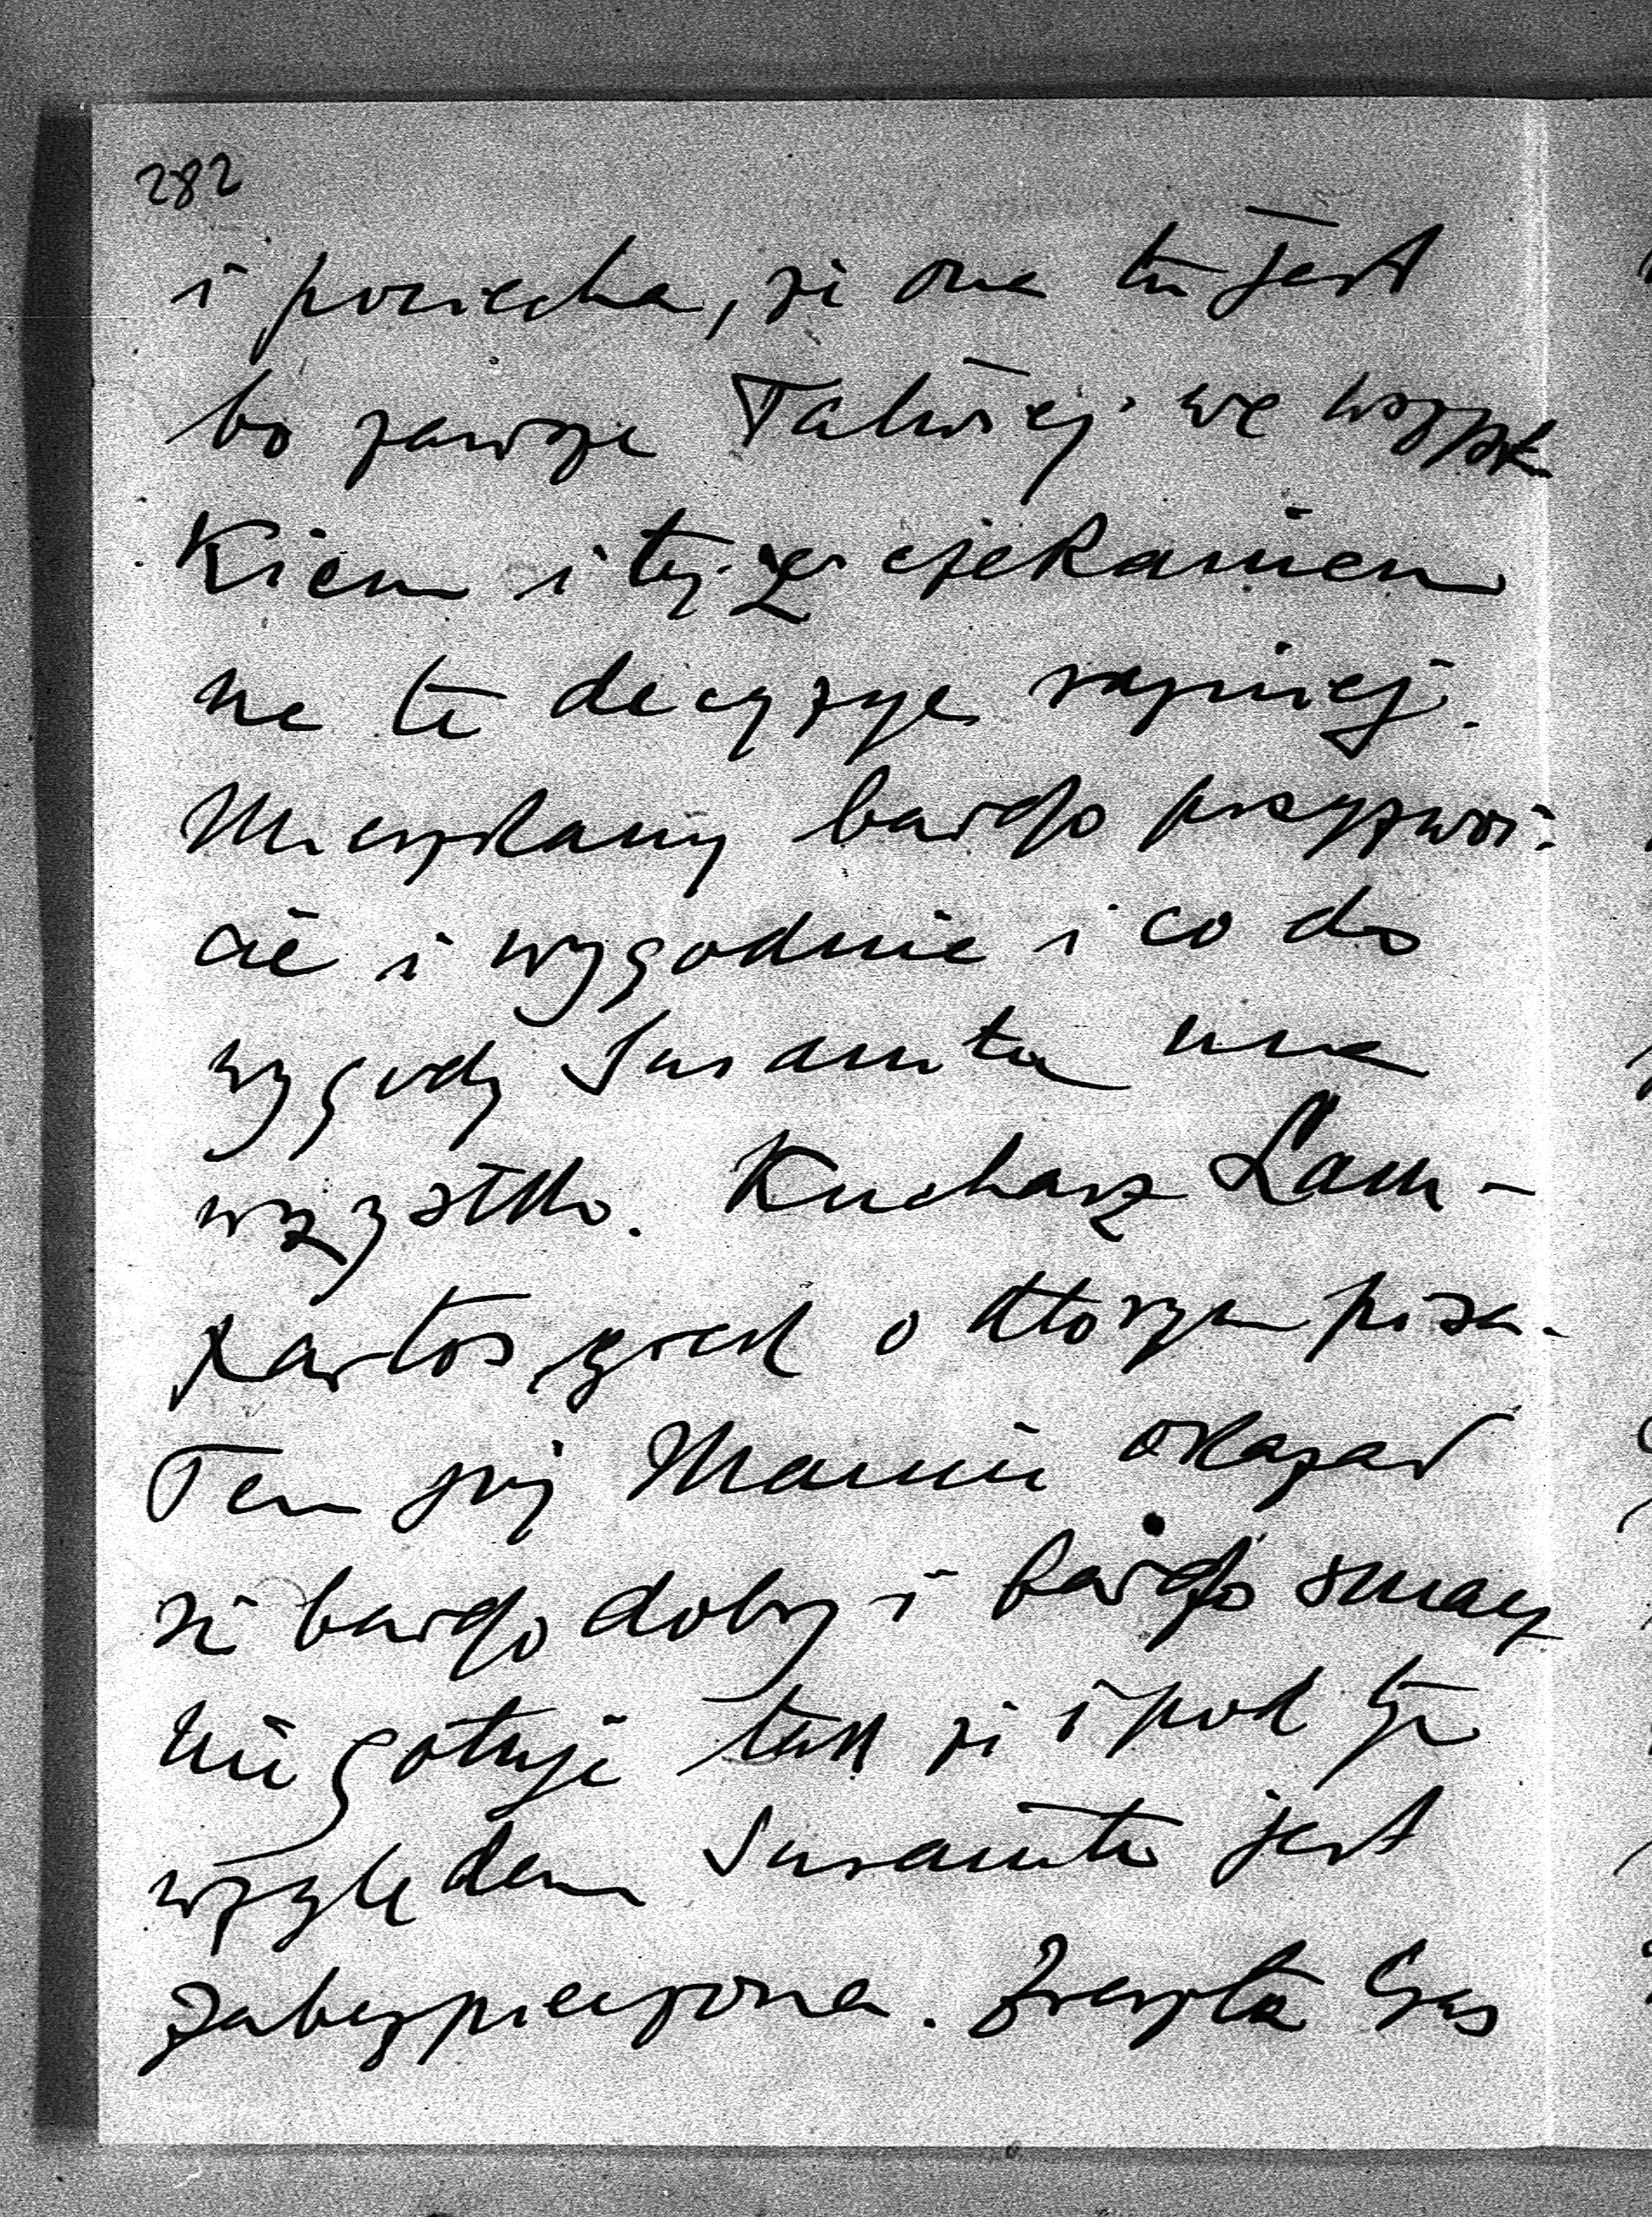 282
i pociecha, że ona tu jest
bo zawsze łatwiej we wszyst
kiem i tyż z czekaniem
na te decyzye razniej.
Mieszkamy bardzo przyzwoi-
cie i wygodnie i co do
wygody Susanita ma
wszystko. Kucharz Lam-
kartos, grek o którym pisa-
łem już Mamie okazał
się bardzo dobry i bardzo smacz
nie gotuje tak że i pod tym
względem Susanita jest
zabezpieczona. Zresztą